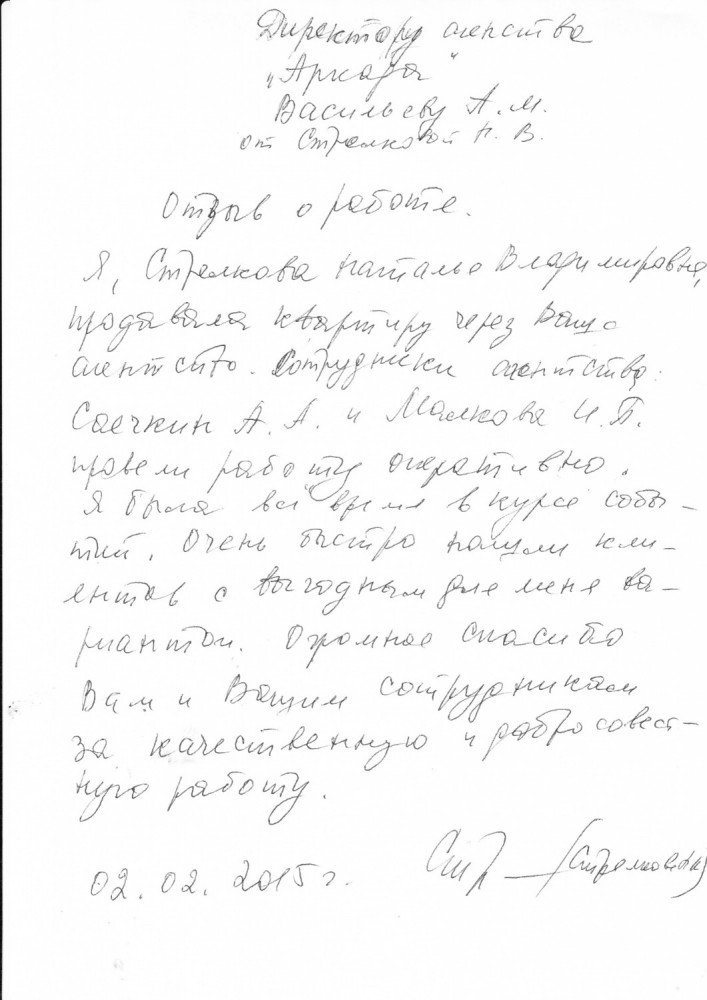 Директору агенства
"Аркада"
Васильеву А.М.
от Стрелковой Н.В.
Отзыв о работе.
Я, Стрелкова Наталья Владимировна,
продавала квартиру через Ваше
агентство. Сотрудники агентства:
Саечкин А.А. и Малкова И.П.
провели работу оперативно.
Я была всё время в курсе собы-
тий. Очень быстро нашли кли-
ентов с выгодным для меня ва-
риантом. Огромное спасибо
Вам и Вашим сотрудникам
за качественную и добросовест-
ную работу.
02.02.2015г. (Стрелкова)